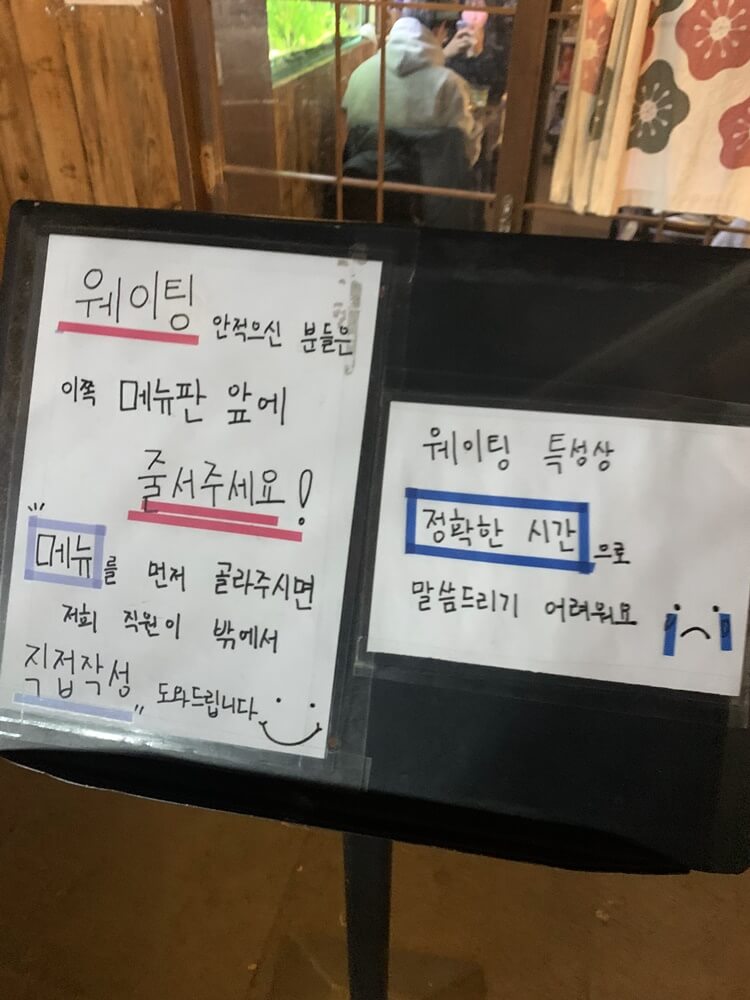 웨이팅 안적으신 분들은
이쪽 메뉴판 앞에
줄서주세요!
"메뉴를 먼저 골라주시면
저희 직원이 밖에서
직접작성" 도와드립니다
웨이팅 특성상
정확한 시간으로
말씀드리기 어려워요